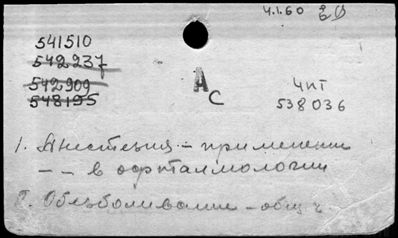 4.1.60
541510
542237
542909
548195
А
С
чит
538036
1. Анестезия - применение
- - в офталмологии
Обезболивание - общ.